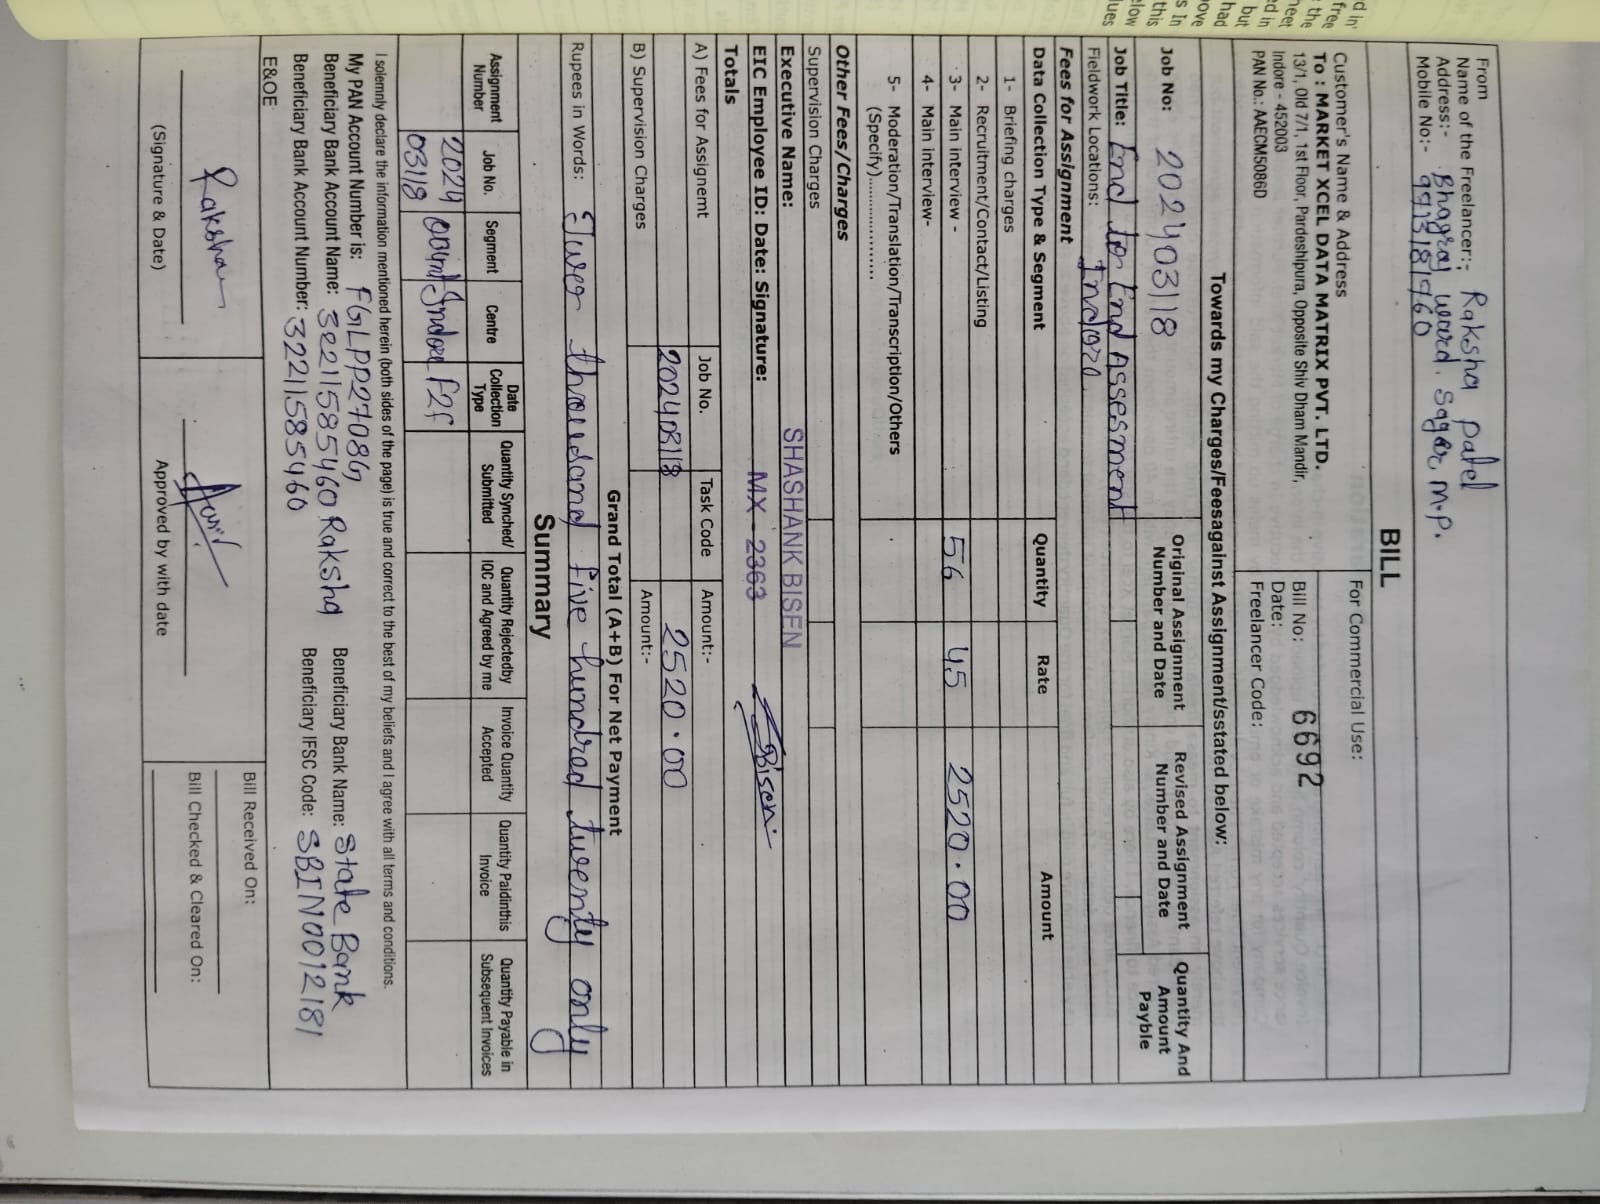 From
Name of the Freelancer:- Raksha patel
Address:- Bhagraj ward. Sagar M.P.
Mobile No:- 9913181960
BILL
Customer's Name & Address
For Commercial Use:
To : MARKET XCEL DATA MATRIX PVT. LTD.
13/1, Old 7/1, 1st Floor, Pardeshipura, Opposite Shiv Dham Mandir,
Indore - 452003
PAN No.: AAECM5086D
Bill No: 6692
Date:
Freelancer Code:
Towards my Charges/Feesagainst Assignment/sstated below:
Job No: 202403118
Original Assignment Number and Date
Revised Assignment Number and Date
Quantity And Amount Payble
Job Title: End to End Assesment
Fieldwork Locations: Indore.
Fees for Assignment
Data Collection Type & Segment Quantity Rate Amount
1- Briefing charges
2- Recruitment/Contact/Listing
3- Main interview - 56 45 2520.00
4- Main interview-
5- Moderation/Translation/Transcription/Others
(Specify)..................
Other Fees/Charges
Supervision Charges
Executive Name: SHASHANK BISEN
EIC Employee ID: Date: Signature: MX - 2363 Bisen
Totals
A) Fees for Assignemt Job No. Task Code Amount:-
202403118 2520.00
B) Supervision Charges Amount:-
Grand Total (A+B) For Net Payment
Rupees in Words: thousand five hundred twenty only
Summary
Assignment Number
Job No.
Segment
Centre
Date Collection Type
Quantity Synched/ Submitted
Quantity Rejectedby IQC and Agreed by me
Invoice Quantity Accepted
Quantity Paidinthis Invoice
Quantity Payable in Subsequent Invoices
2024 Indore F2F
03118
I solemnly declare the information mentioned herein (both sides of the page) is true and correct to the best of my beliefs and I agree with all terms and conditions.
My PAN Account Number is: FGLPP2708G
Beneficiary Bank Account Name: 32211585460 Raksha Beneficiary Bank Name: State Bank
Beneficiary Bank Account Number: 32211585460 Beneficiary IFSC Code: SBIN0012181
E&OE
Raksha
(Signature & Date)
Approved by with date
Bill Received On:
Bill Checked & Cleared On: